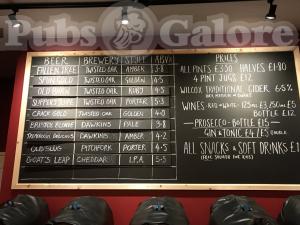 Pubs Galore
BEER BREWERY STUFF ABV%
FALLEN TREE TWISTED OAK AMBER 3.8
SPUN GOLD TWISTED OAK
OLD BARN TWISTED OAK RUBY 4.5
TWISTED OAK PORTER 5.3
CRACK GOLD TWISTED OAK GOLDEN 4.0
DAWKINS PALE 3.8
DAWKINS AMBER 4.2
OLD SLUG PITCHFORK PORTER 4.5
GOAT'S LEAP CHEDDAR I.P.A 5.5
PRICES
ALL PINTS £3.50 HALVES £1.80
4 PINT JUGS £12
WILCOX TRADITIONAL CIDER 6.5%
WINES RED + WHITE 125ml £3 /250ml £5
BOTTLE £12
PROSECCO - BOTTLE £15
GIN & TONIC £4/£5
ALL SNACKS & SOFT DRINKS £1
(FREE SQUASH FOR KIDS)